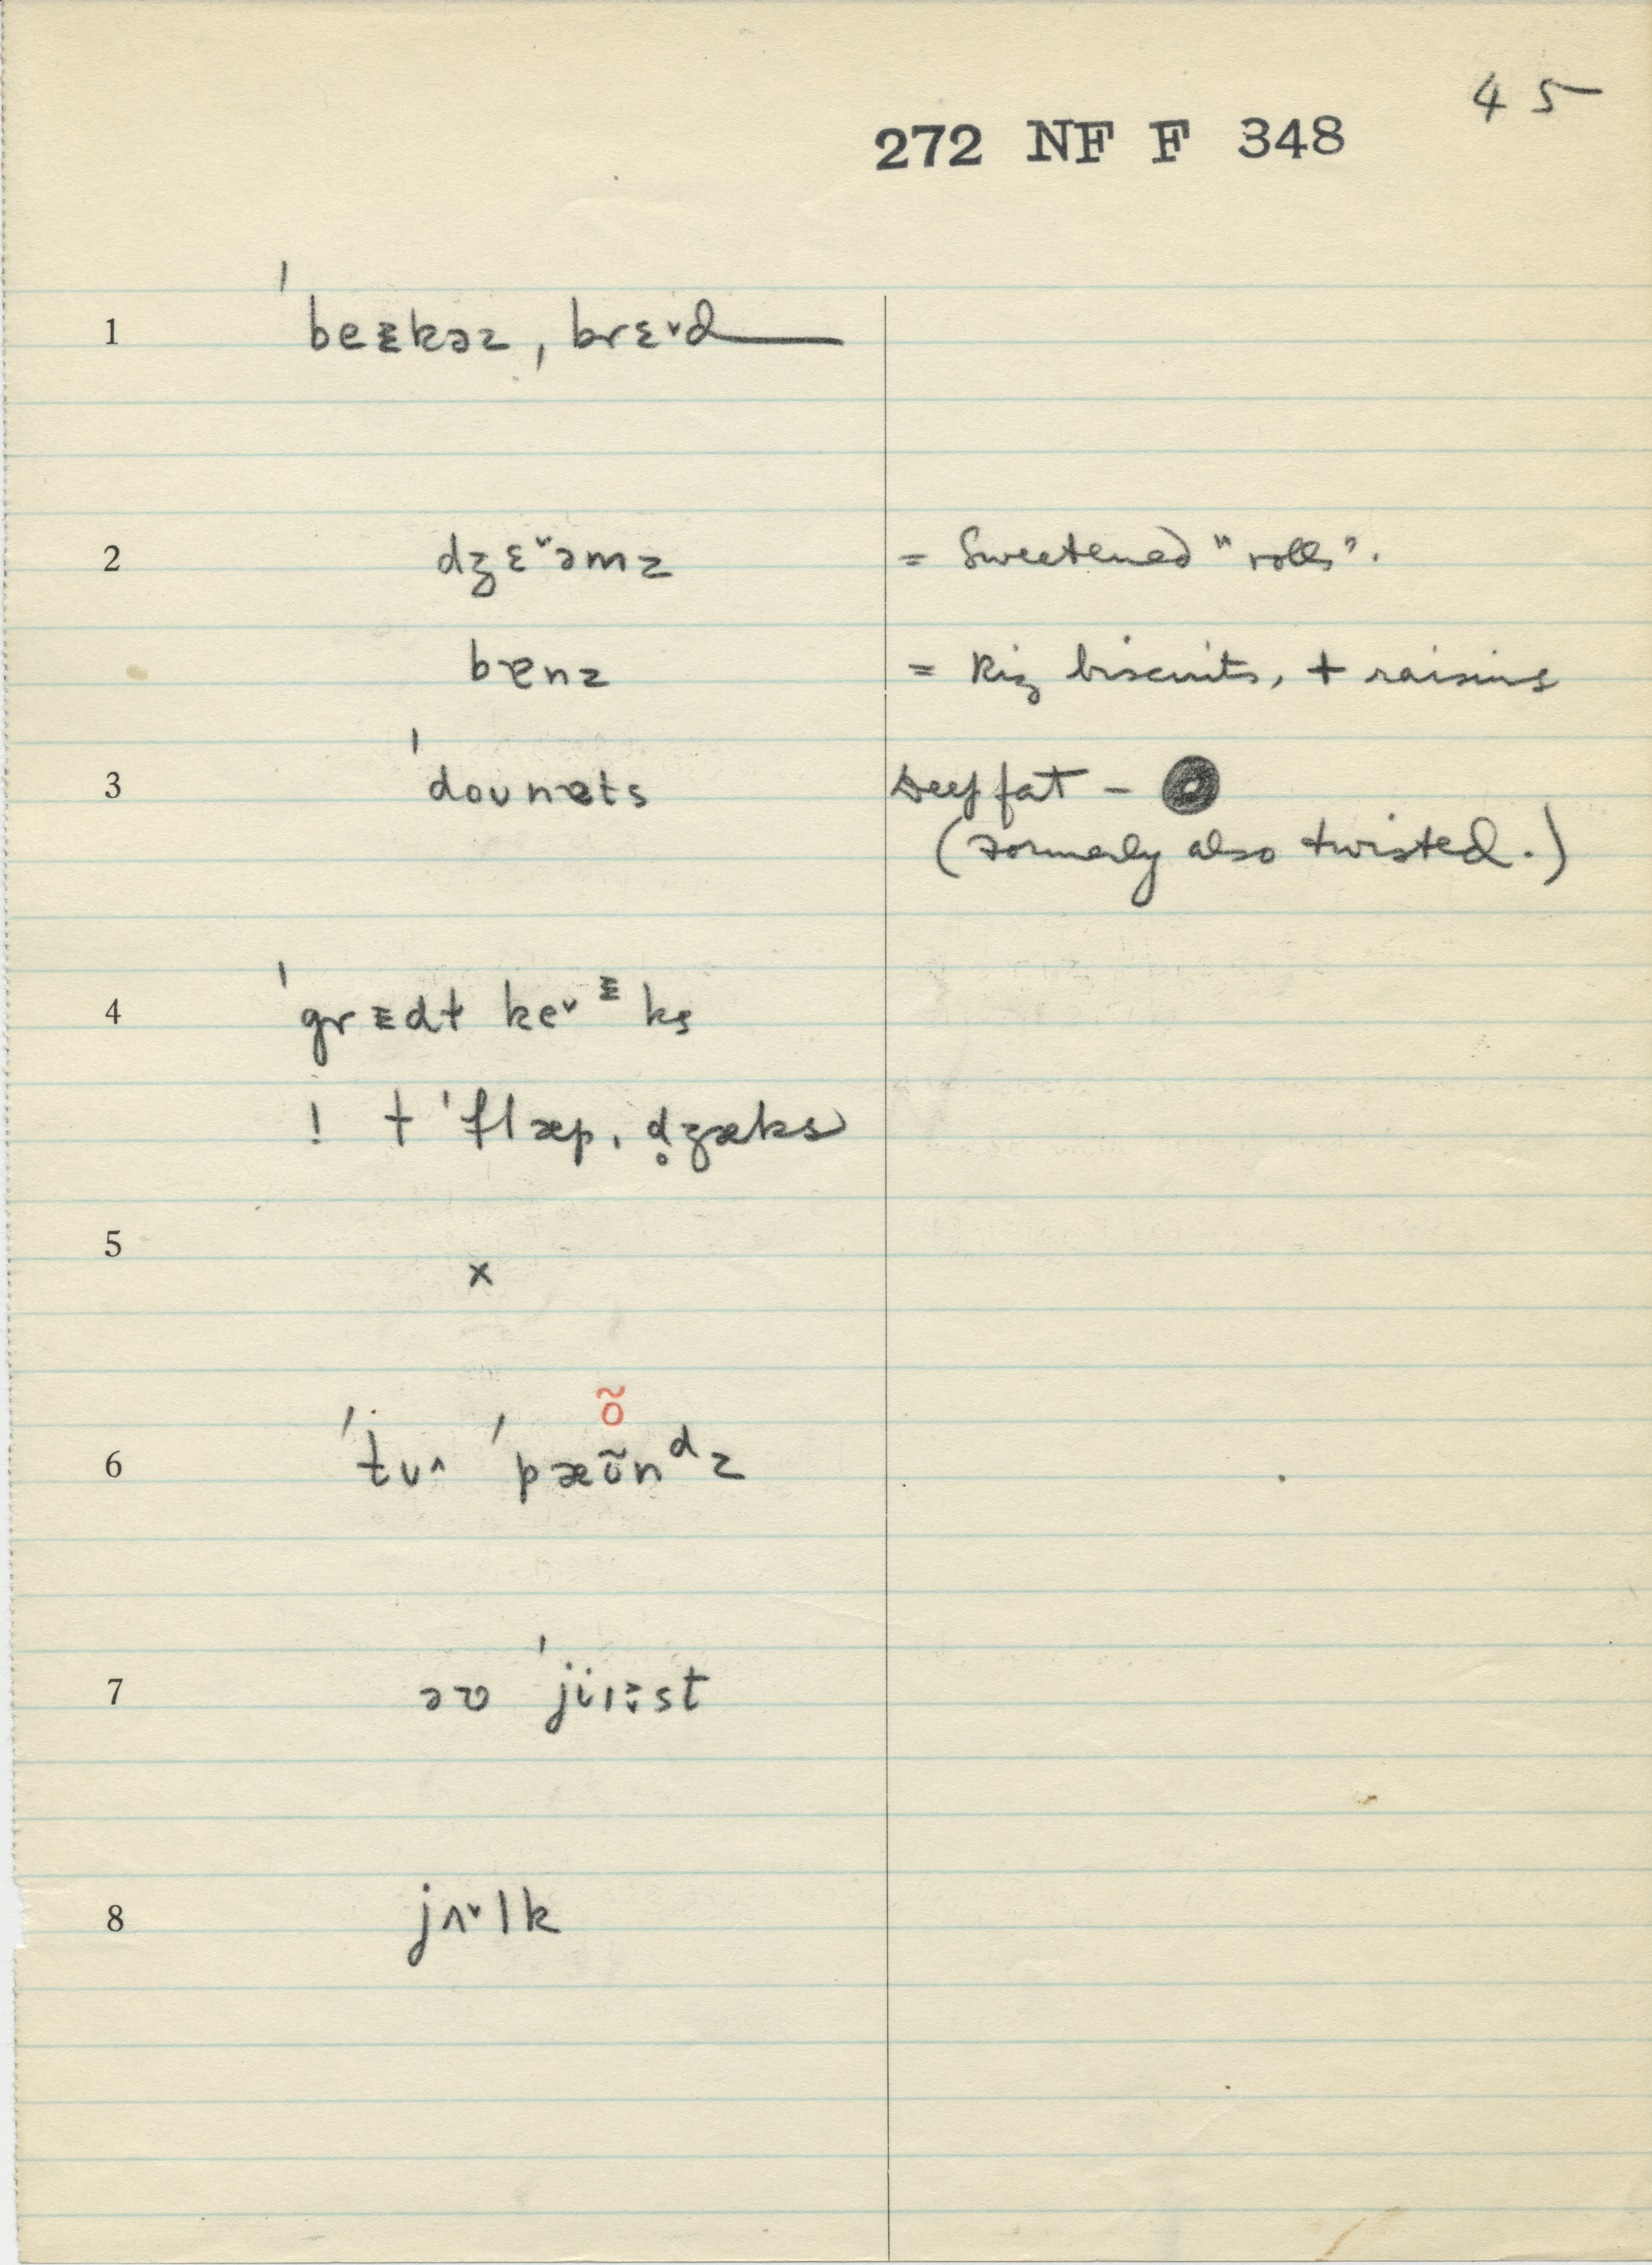 45
272 NF F 348
1 ˈbeᵻkəz, brɛ˅d
2 dʒɛ˅əmz = Sweetened "rolls".
bɐnz = Big biscuits, + raisins
3 ˈdoʊnəts Deep fat –
(Formerly also twisted.)
4 ˈgrᵻdt ke˅ ᵻ ks
! t ˈflæp, d̥ʒæks
5 x
õ
6 ˈtʊ˄ ˈpæʊ̃nᵈz
7 əʊ ˈjiɪst
8 jʌ˅lk